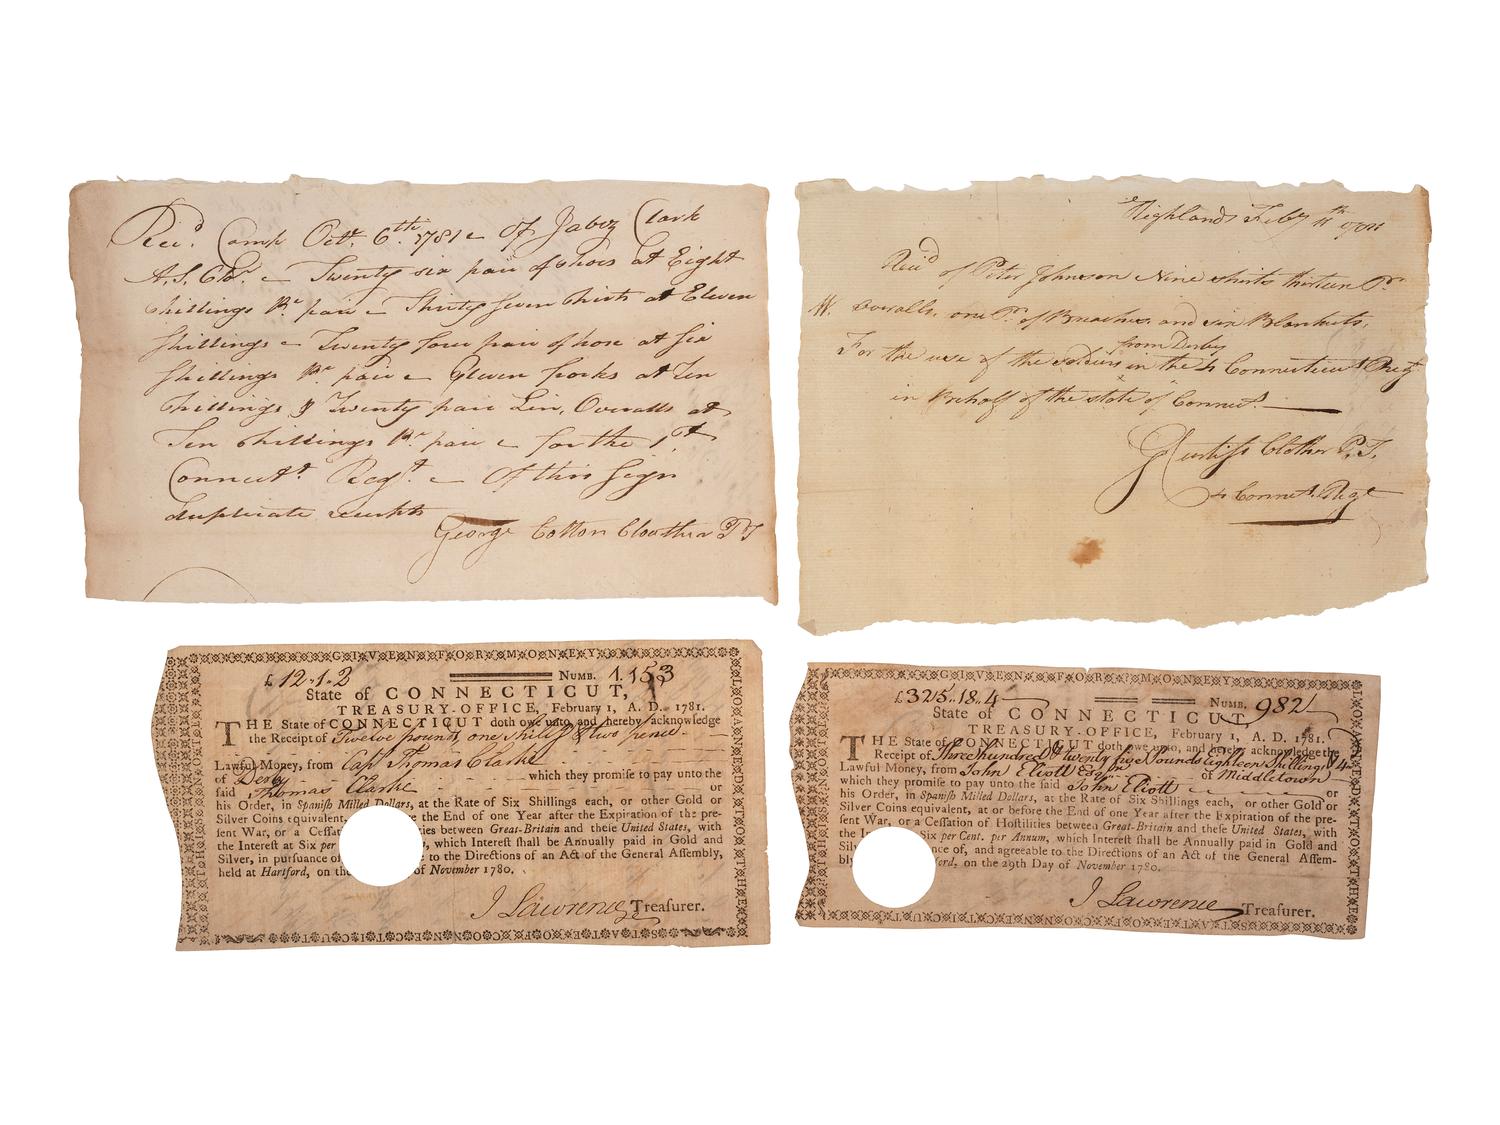 Rec.d Camp Octr. 6th. 1781 - of Jabez Clark
A.S. Clor. - Twenty six pair of shoes at Eight
shillings Pr. pair - Thirty seven Shirts at Eleven
shillings - Twenty four pair of hose at Six
shillings Pr. pair - Eleven frocks at Ten
shillings & Twenty pair Lin. Overalls at
Ten shillings Pr. pair - for the 1st
Connectt. Regt. - Of this Sign
duplicate
George Cotton Cloathier
Highlands Feby 11th
Recd of Peter Johnson Nine shirts thirteen Pr.
W. overalls, one Pr. of Breaches and six Blankets,
from Derby
For the use of the soldiers in the 4 Connecticut Regt
in Behalf of the state of Connect.
Curtiss Clother P.T.
4 Connet. Regt
GIVEN FOR MONEY
£ 12 .. 1 .. 2 NUMB. 1.153
State of CONNECTICUT,
TREASURY-OFFICE, February 1, A. D. 1781.
THE State of CONNECTICUT doth owe unto, and hereby acknowledge
the Receipt of Twelve pounds, one shillg & two pence
Lawful Money, from Cap Thomas Clarke
of Derby which they promise to pay unto the
said Thomas Clarke or
his Order, in Spanish Milled Dollars, at the Rate of Six Shillings each, or other Gold or
Silver Coins equivalent, the End of one Year after the Expiration of the pre-
sent War, or a Cessat ties between Great-Britain and these United States, with
the Interest at Six per , which Interest shall be Annually paid in Gold and
Silver, in pursuance of to the Directions of an Act of the General Assembly,
held at Hartford, on the of November 1780.
J Lawrence Treasurer.
THIS NOTE
LOANED TO THE
STATE OF CONNECTICUT
GIVEN FOR MONEY
£325 .. 18 .. 4 NUMB. 982
State of CONNECTICUT,
TREASURY-OFFICE, February 1, A. D. 1781.
THE State of CONNECTICUT doth owe unto, and hereby acknowledge the
Receipt of Three hundred & twenty five Pounds Eighteen Shillings & 4
Lawful Money, from John Eliott Esqr of Middletown
which they promise to pay unto the said John Eliott or
his Order, in Spanish Milled Dollars, at the Rate of Six Shillings each, or other Gold or
Silver Coins equivalent, at or before the End of one Year after the Expiration of the pre-
sent War, or a Cessation of Hostilities between Great-Britain and these United States, with
the In Six per Cent. per Annum, which Interest shall be Annually paid in Gold and
Silv nce of, and agreeable to the Directions of an Act of the General Assem-
bly ford, on the 29th Day of November 1780.
J Lawrence Treasurer.
THIS NOTE
LOANED TO THE
STATE OF CONNECTICUT